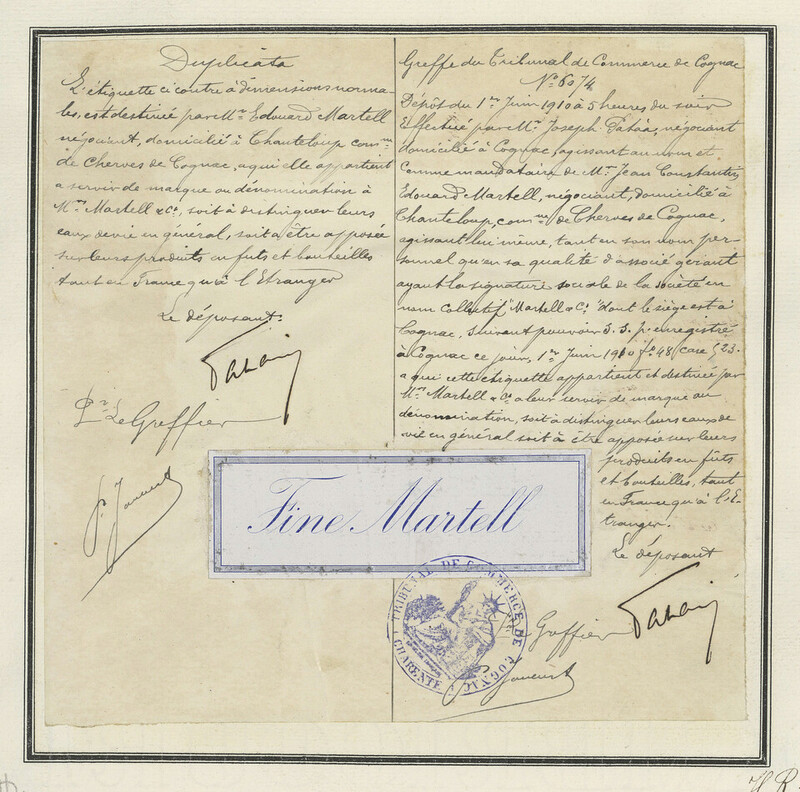 Duplicata
L'étiquette ci contre à dimensions norma-
les, est destinée par Mr. Edouard Martell
négociant, domicilié à Chanteloup comne
de Cherves de Cognac, a qui elle appartient
a servir de marque ou dénomination à
Mrs Martell & Co, soit à distinguer leurs
eaux de vie en général, soit a être apposée
sur leurs produits en futs et bouteilles
tant en France qu'à l'Etranger
Le déposant:
Pr Le Greffier
Greffe du Tribunal de Commerce de Cognac
No 6074
Dépôt du 1er Juin 1910 à 5 heures du soir
Effectué par Mr Joseph, négociant
domicilié à Cognac, agissant au nom et
comme mandataire de Mr Jean Constantin
Edouard Martell, négociant, domicilié à
Chanteloup, comne de Cherves de Cognac,
agissant lui même, tant en son nom per-
sonnel qu'en sa qualité d'associé gérant
ayant la signature sociale de la Société en
nom collectif "Martell & Co" dont le siège est à
Cognac, suivant pouvoir S. S. p. enregistré
à Cognac ce jour, 1er Juin 1910 fo 48, case 23.
a qui cette étiquette appartient et destinée par
Mrs Martell & Co a leur servir de marque ou
dénomination, soit à distinguer leurs eaux de
vie en général soit à être apposée sur leurs
produits en fûts
et bouteilles, tant
en France qu'à l'E-
tranger.
Le déposant
Fine Martell
TRIBUNAL DE COMMERCE DE COGNAC
CHARENTE
Greffier
H R